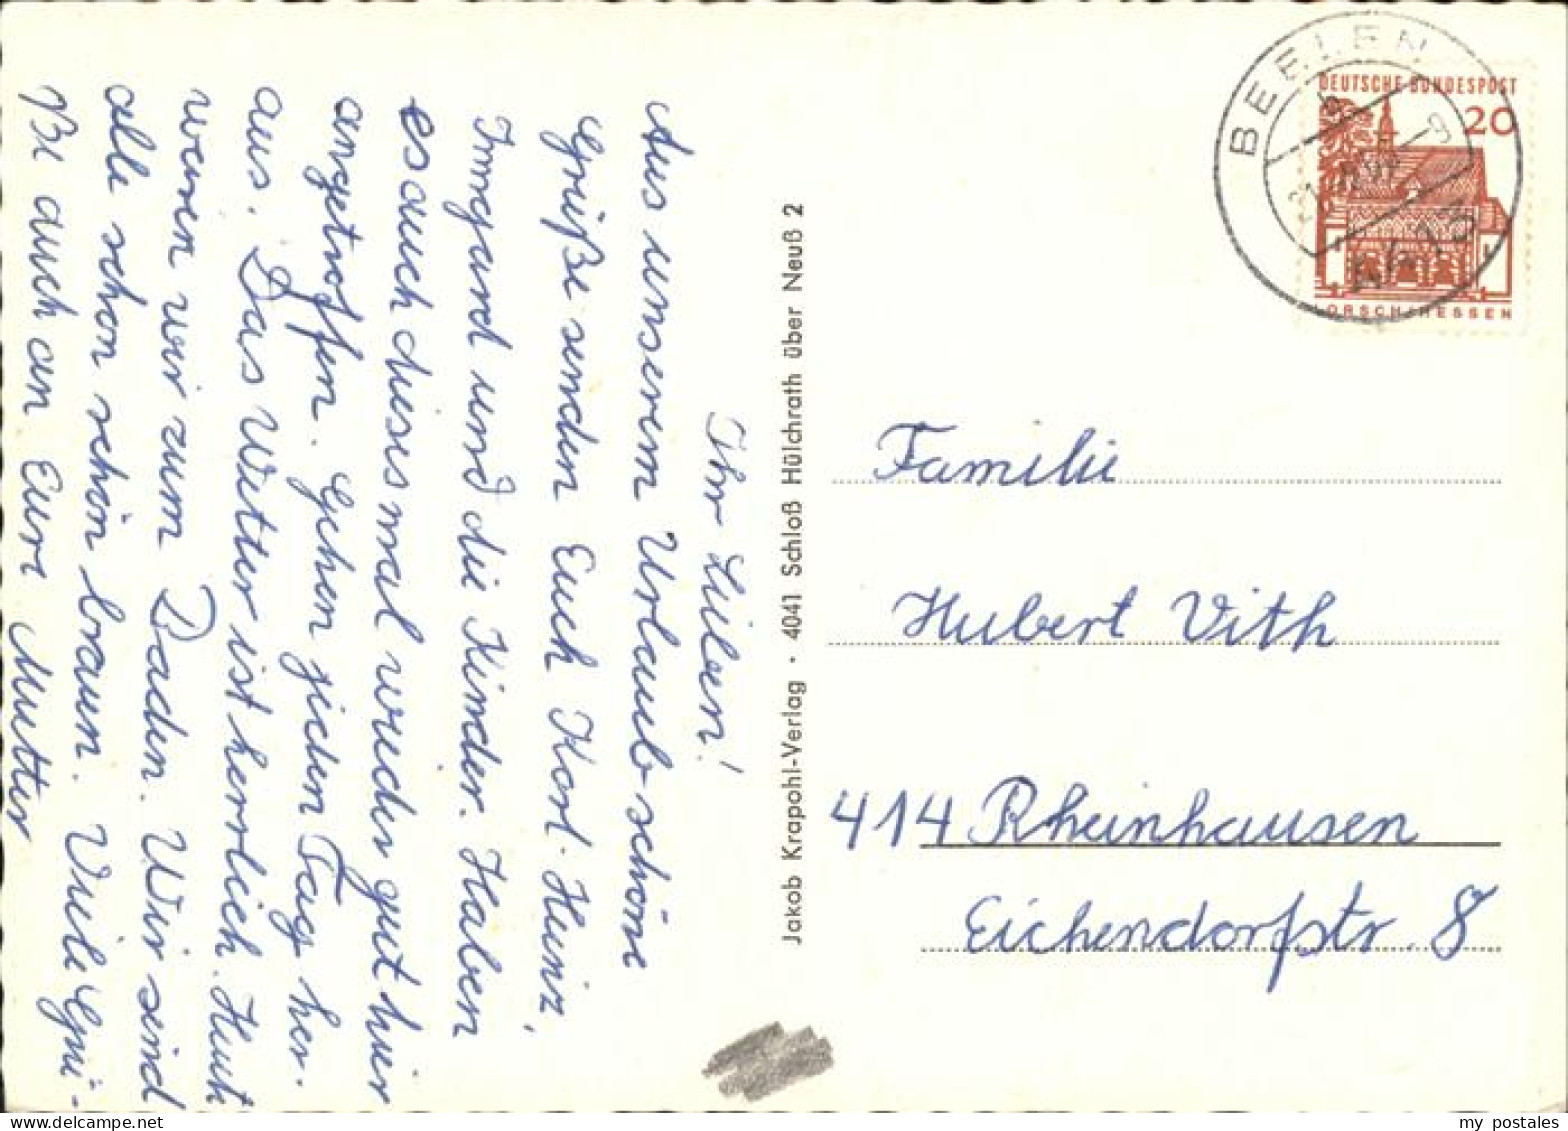 Ihr Lieben!
Aus unserem Urlaub schöne
Grüße senden Euch Karl-Heinz,
Irmgard und die Kinder. Haben
es auch dieses mal wieder gut hier
angetroffen. Gehen jeden Tag her-
aus. Das Wetter ist herrlich. Heute
waren wir zum Baden. Wir sind
alle schon schön braun. Viele Grü-
ße auch an Eure Mutter
Jakob Krapohl-Verlag · 4041 Schloß Hülchrath über Neuß 2
BEELEN
4413
DEUTSCHE BUNDESPOST
20
LORSCH/HESSEN
Familie
Hubert Vith
414 Rheinhausen
Eichendorfstr. 8
my postales